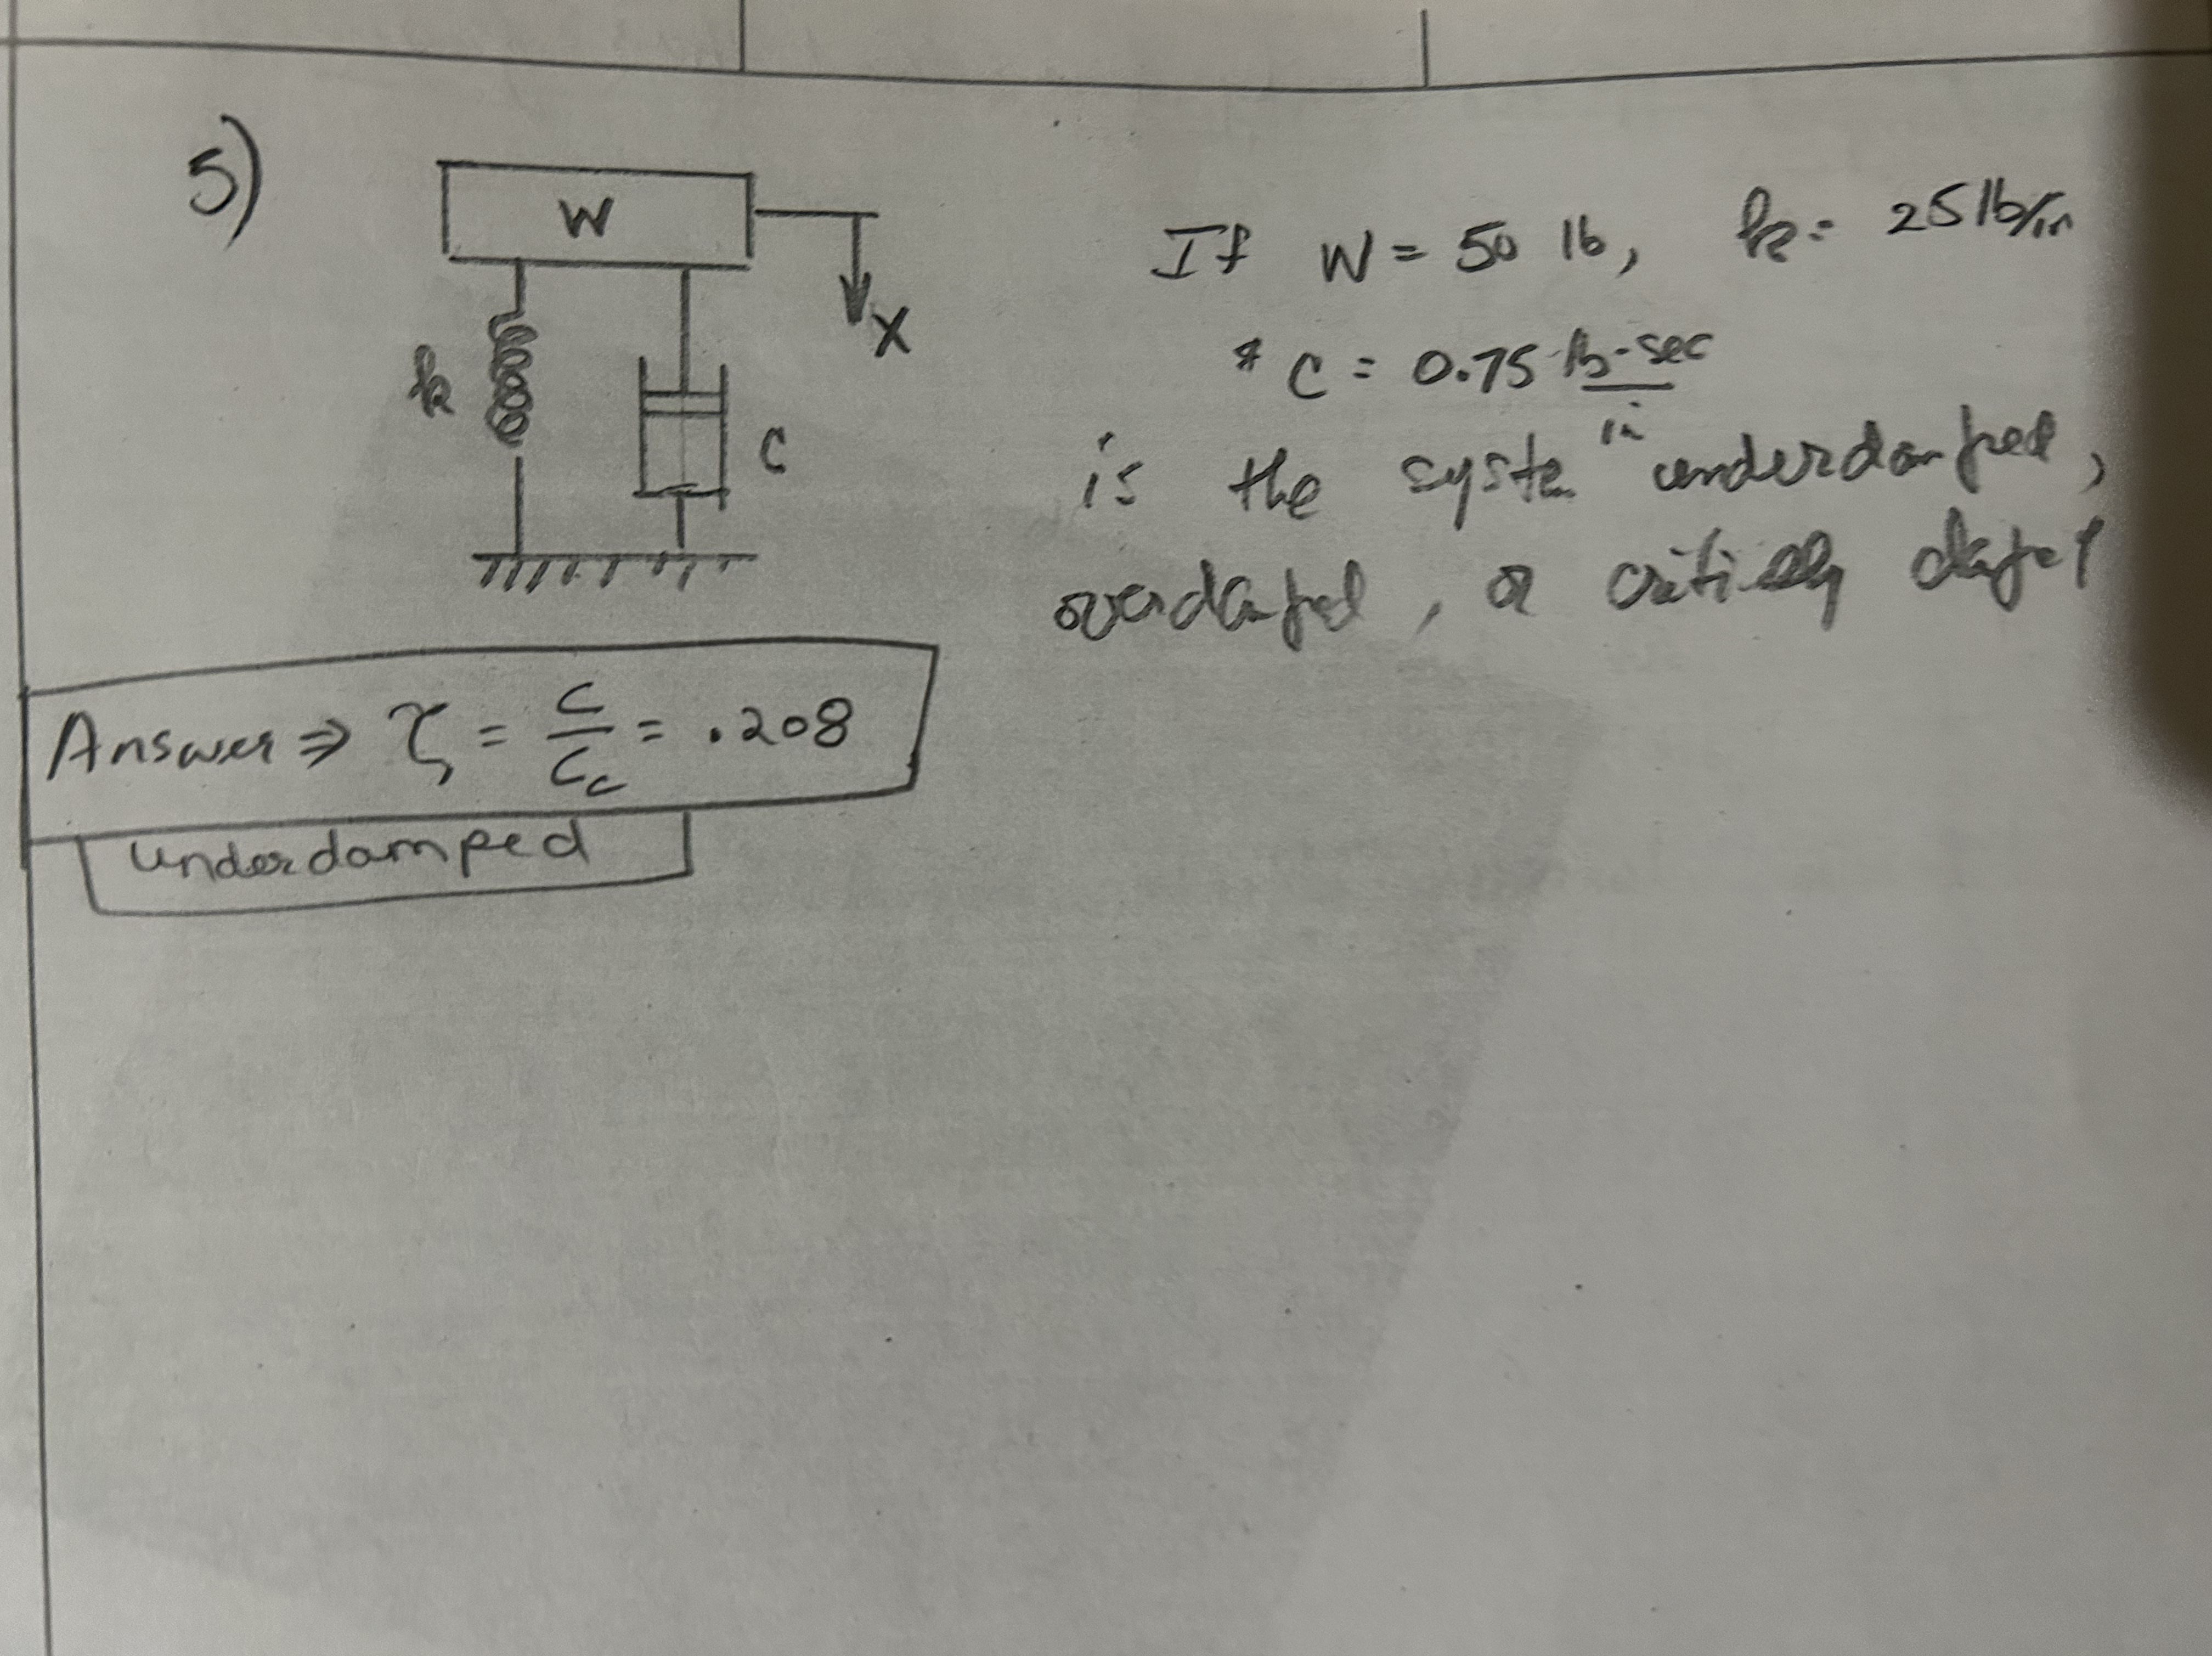 5)
W
X
k
C
If W = 50 lb, k = 25 lb/in
* C = 0.75 lb-sec
in
is the syste underdamped,
overdamped, or critically damped
Answer ⇒ ζ = C/Cc = .208
underdamped